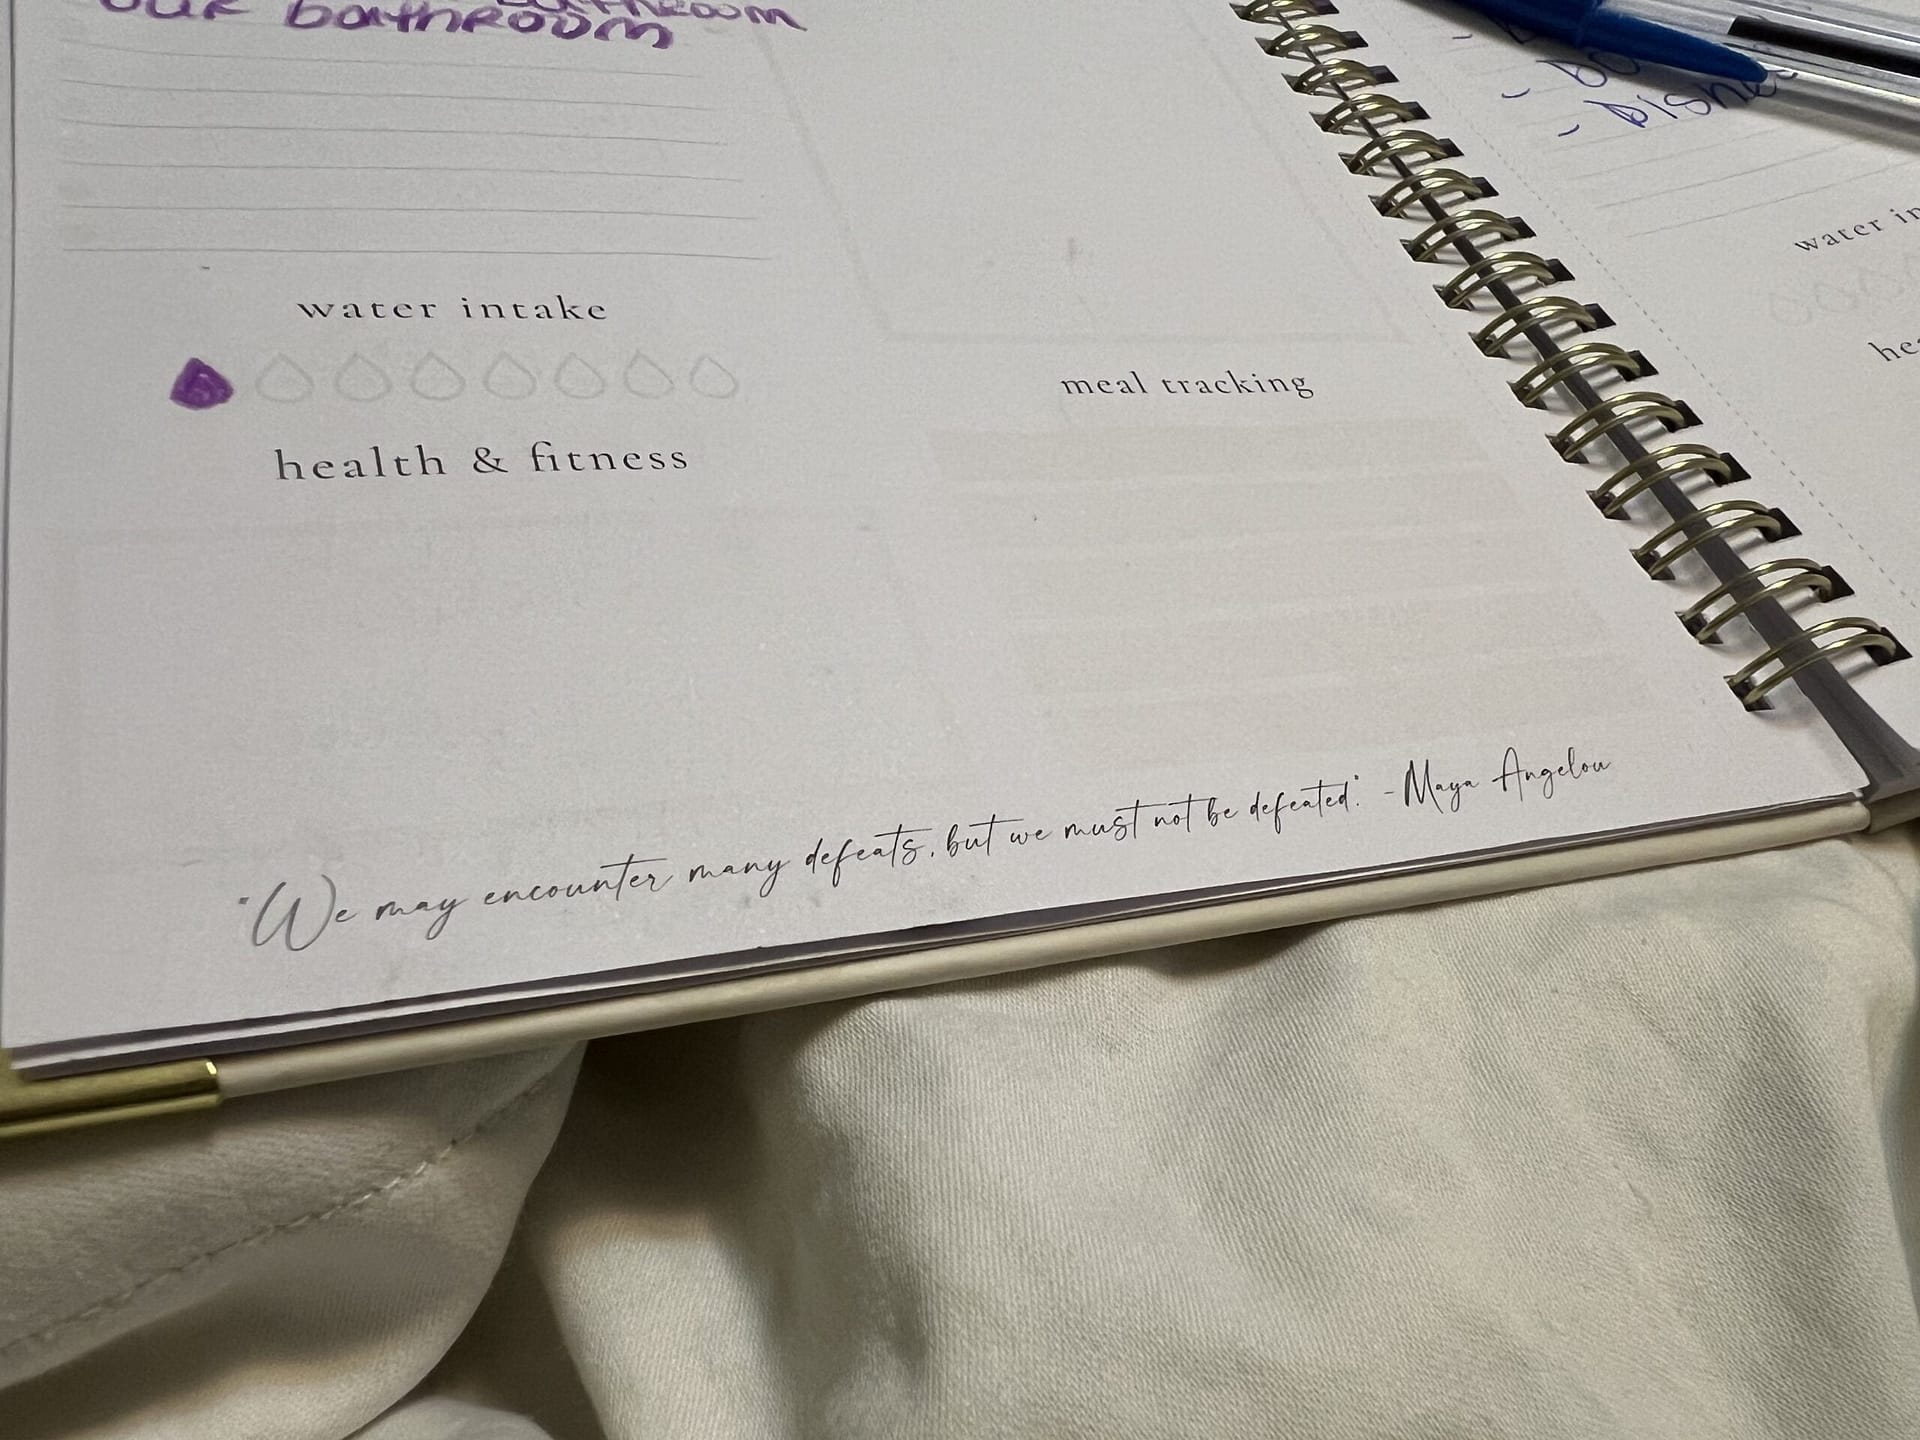 bathroom
our bathroom
water intake
health & fitness
meal tracking
"We may encounter many defeats, but we must not be defeated." - Maya Angelou
- Dishes
water in
hea